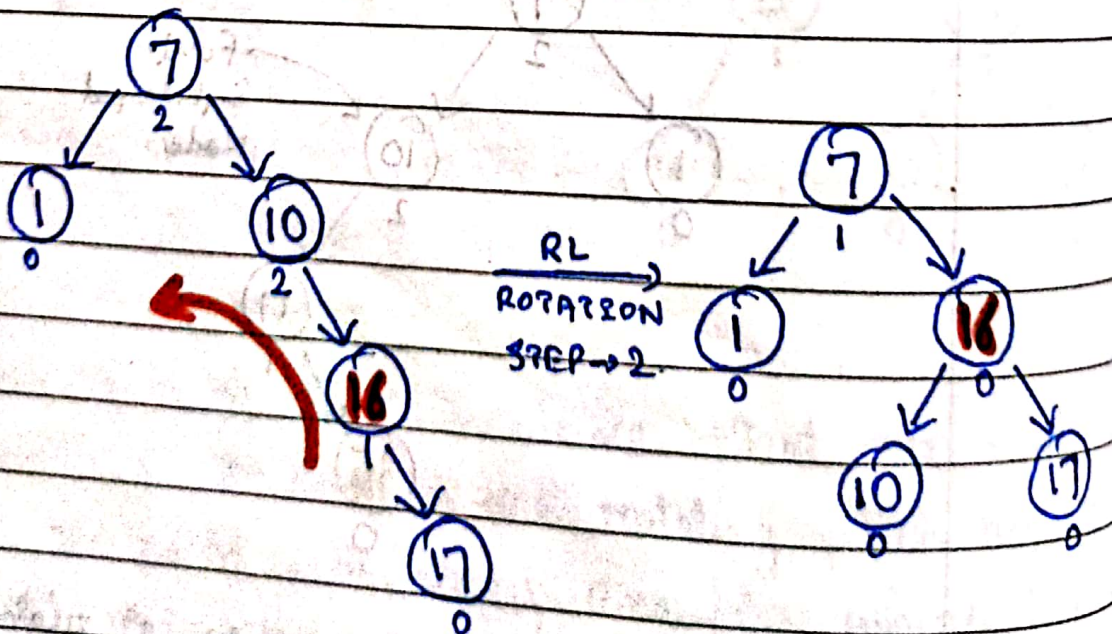 7
2
1
0
10
2
16
1
17
0
RL
ROTATION
STEP → 2.
7
1
1
0
16
0
10
0
17
0